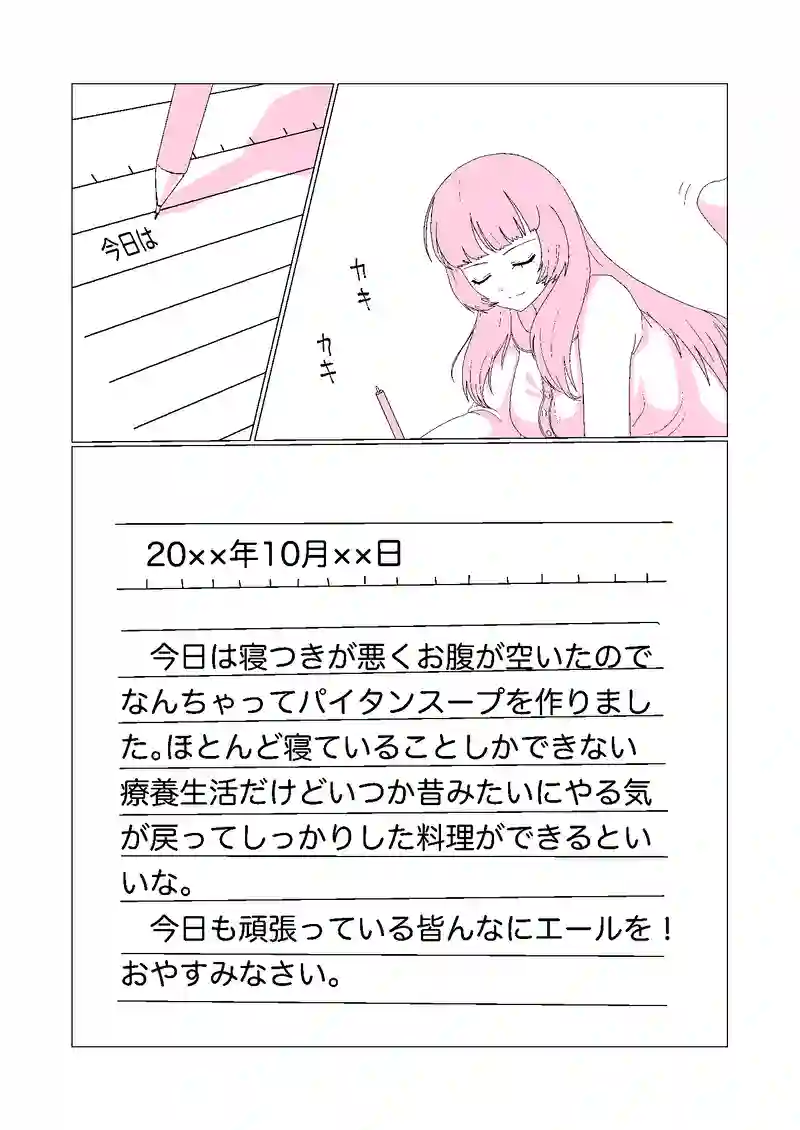 今日は
カキ
カキ
20××年10月××日
今日は寝つきが悪くお腹が空いたので
なんちゃってパイタンスープを作りまし
た。ほとんど寝ていることしかできない
療養生活だけどいつか昔みたいにやる気
が戻ってしっかりした料理ができるとい
いな。
今日も頑張っている皆んなにエールを！
おやすみなさい。